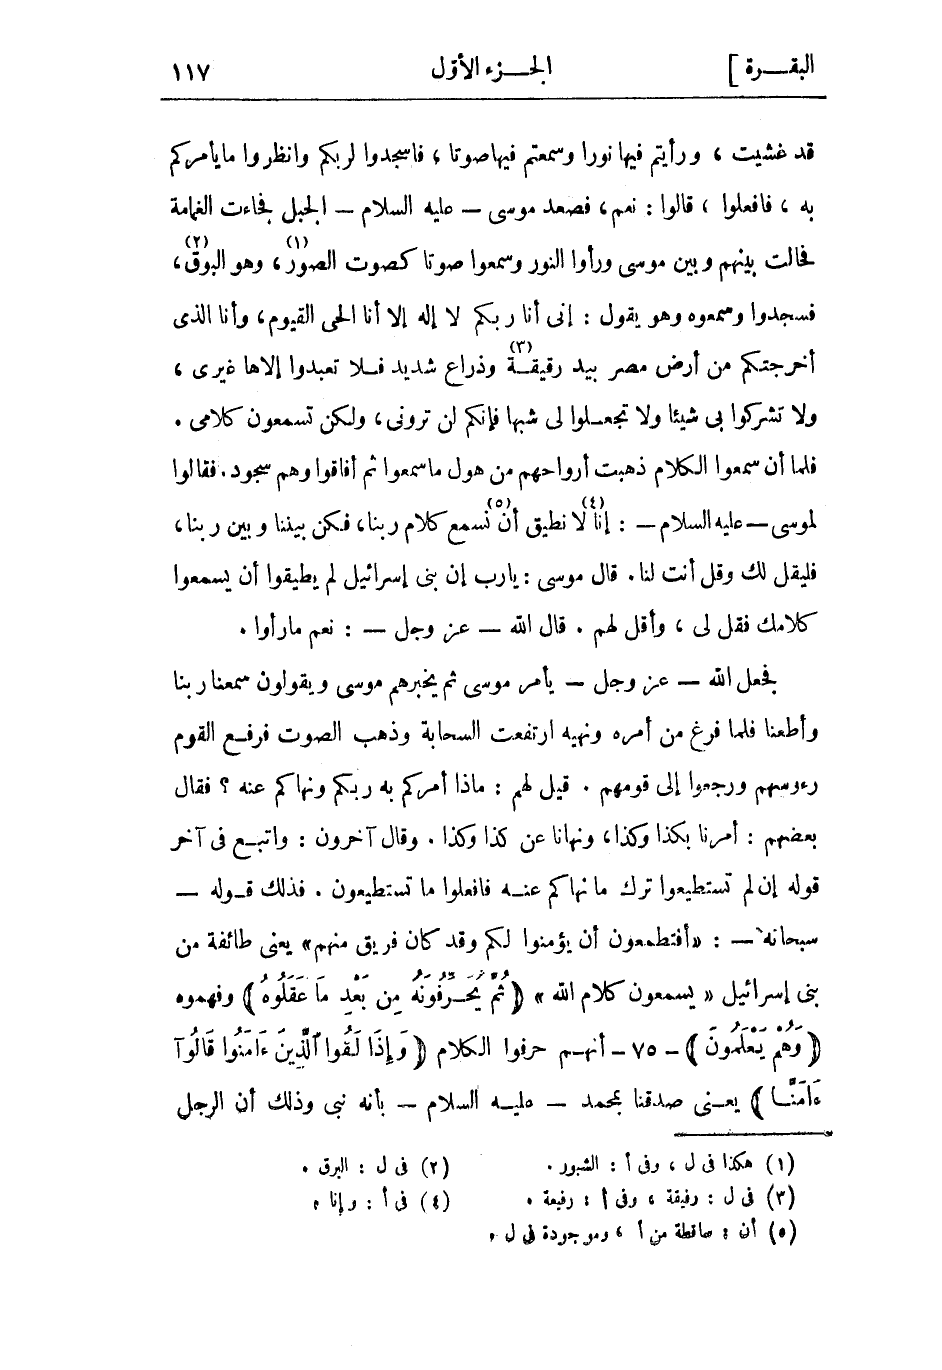 البقـــرة ]
الجــزء الأول
١١٧
قد غشيت ، ورأيتم فيها نورا وسمعتم فيها صوتا ، فاسجدوا لربكم وانظروا ما يأمركم
به ، فافعلوا ، قالوا : نعم ، فصعد موسى — عليه السلام — الجبل فجاءت الغمامة
فحالت بينهم وبين موسى ورأوا النور وسمعوا صوتا كصوت الصور(١) ، وهو البوق(٢) ،
فسجدوا وسمعوه وهو يقول : إنى أنا ربكم لا إله إلا أنا الحى القيوم ، وأنا الذى
أخرجتكم من أرض مصر بيد رقيقــة(٣) وذراع شديد فــلا تعبدوا إلاها غيرى ،
ولا تشركوا بى شيئا ولا تجعــلوا لى شبها فإنكم لن ترونى ، ولكن تسمعون كلامى .
فلما أن سمعوا الكلام ذهبت أرواحهم من هول ما سمعوا ثم أفاقوا وهم سجود . فقالوا
لموسى — عليه السلام — : إنا(٤) لا نطيق أن(٥) نسمع كلام ربنا ، فكن بيننا وبين ربنا ،
فليقل لك وقل أنت لنا . قال موسى : يارب إن بنى إسرائيل لم يطيقوا أن يسمعوا
كلامك فقل لى ، وأقل لهم . قال الله — عز وجل — : نعم ما رأوا .
فجعل الله — عز وجل — يأمر موسى ثم يخبرهم موسى ويقولون سمعنا ربنا
وأطعنا فلما فرغ من أمره ونهيه ارتفعت السحابة وذهب الصوت فرفــع القوم
رءوسهم ورجعوا إلى قومهم . قيل لهم : ماذا أمركم به ربكم ونهاكم عنه ؟ فقال
بعضهم : أمرنا بكذا وكذا ، ونهانا عن كذا وكذا . وقال آخرون : واتبــع فى آخر
قوله إن لم تستطيعوا ترك ما نهاكم عنــه فافعلوا ما تستطيعون . فذلك قــوله —
سبحانه — : « أفتطمعون أن يؤمنوا لكم وقد كان فريق منهم » يعنى طائفة من
بنى إسرائيل « يسمعون كلام الله » ﴿ ثُمَّ يُحَــرِّفُونَهُ مِن بَعْدِ مَا عَقَلُوهُ ﴾ وفهموه
﴿ وَهُمْ يَعْلَمُونَ ﴾ - ٧٥ - أنهــم حرفوا الكلام ﴿ وَإِذَا لَقُوا ٱلَّذِينَ ءَامَنُوا قَالُوٓا
ءَامَنَّــا ﴾ يعــنى صدقنا بمحمد — عليــه السلام — بأنه نبى وذلك أن الرجل
(١) هكذا فى ل ، وفى أ : الشبور . (٢) فى ل : البرق .
(٣) فى ل : رفيقة ، وفى أ : رفيعة . (٤) فى أ : وإنا .
(٥) أن : ساقطة من أ ، وموجودة فى ل .